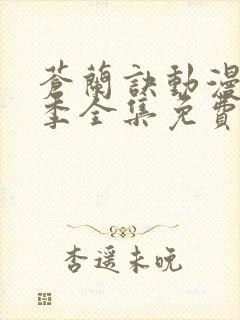 蒼蘭訣動漫
季全集免費
杏遥未晚